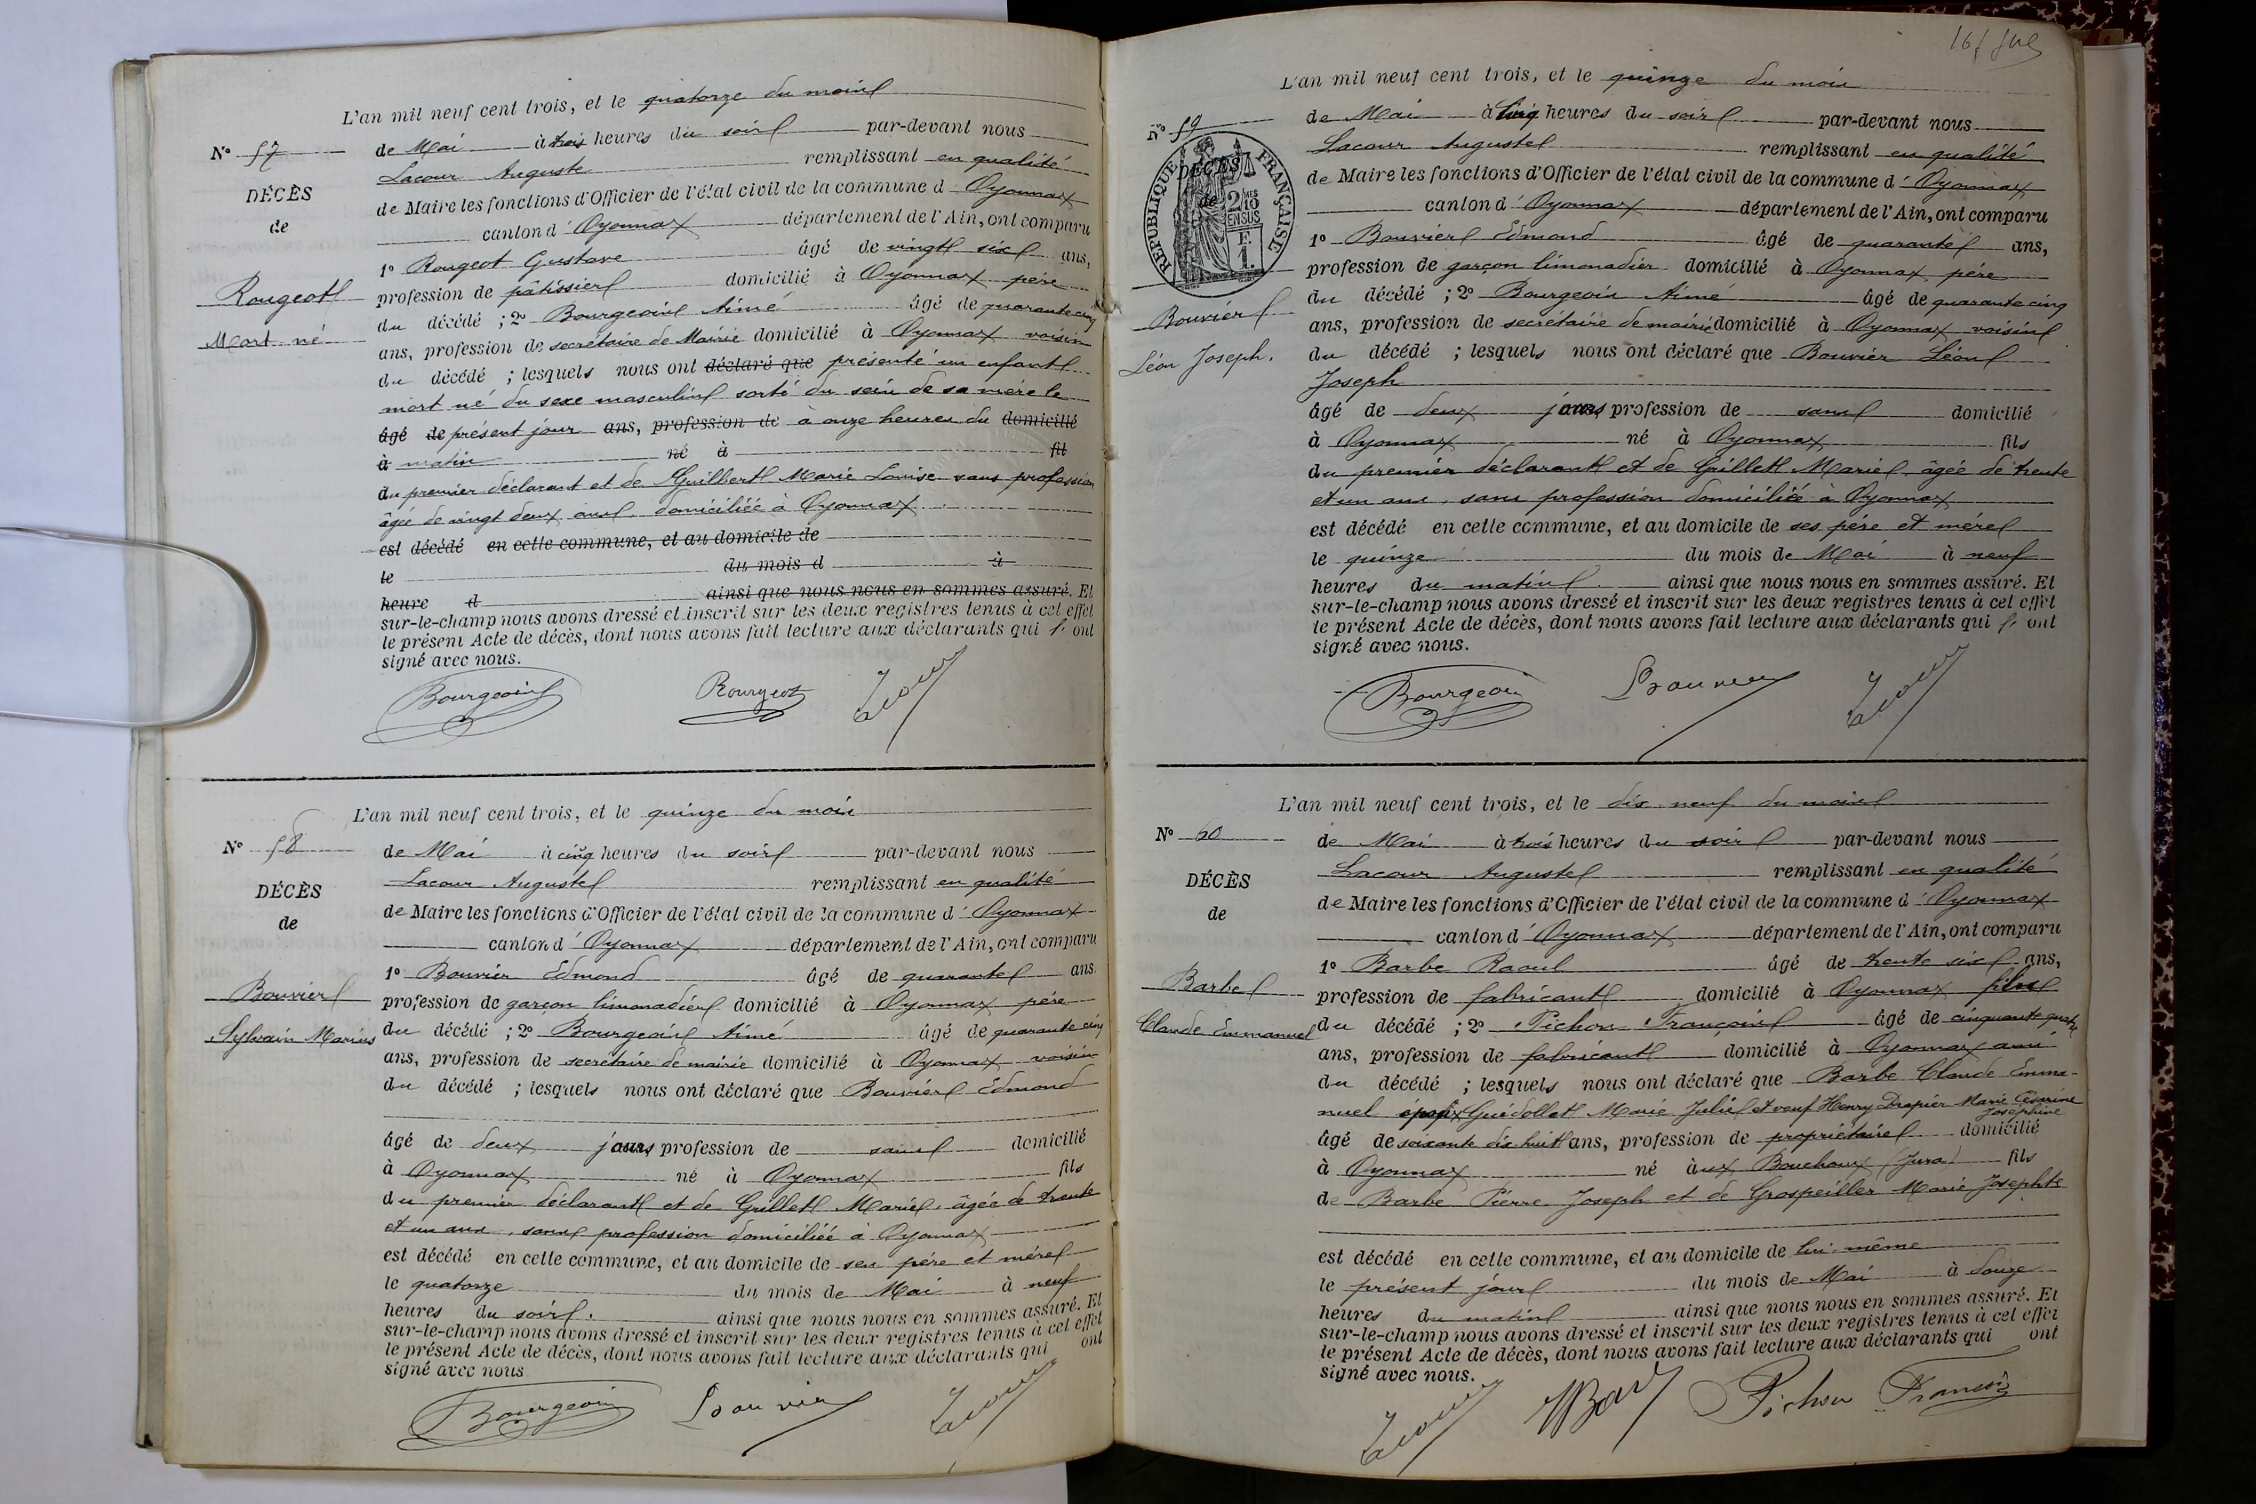 L'an mil neuf cent trois, et le quatorze du mois
N° 57
de Mai à trois heures du soir par-devant nous
Lacour Auguste remplissant en qualité
DÉCÈS
de Maire les fonctions d'Officier de l'état civil de la commune d'Oyonnax
de
canton d'Oyonnax département de l'Ain, ont comparu
1° Rougeot Gustave âgé de vingt six ans,
Rougeot
profession de pâtissier domicilié à Oyonnax père
du décédé ; 2° Bourgeois Aimé âgé de quarante cinq
Mort né
ans, profession de secrétaire de Mairie domicilié à Oyonnax voisin
du décédé ; lesquels nous ont déclaré que présenté un enfant
mort né du sexe masculin sorti du sein de sa mère le
âgé de présent jour ans, profession de à onze heures du domicilié
à matin né à fil
du premier déclarant et de Guilbert Marie Louise sans profession
âgée de vingt deux ans domiciliée à Oyonnax
est décédé en cette commune, et au domicile de
le du mois d à
heure d ainsi que nous nous en sommes assuré. Et
sur-le-champ nous avons dressé et inscrit sur les deux registres tenus à cet effet
le présent Acte de décès, dont nous avons fait lecture aux déclarants qui l' ont
signé avec nous.
Bourgeois Rougeot Lacour
L'an mil neuf cent trois, et le quinze du mois
N° 58
de Mai à cinq heures du soir par-devant nous
Lacour Auguste remplissant en qualité
DÉCÈS
de Maire les fonctions d'Officier de l'état civil de la commune d'Oyonnax
de
canton d'Oyonnax département de l'Ain, ont comparu
1° Bouvier Edmond âgé de quarante ans
Bouvier
profession de garçon limonadier domicilié à Oyonnax père
Sylvain Marius
du décédé ; 2° Bourgeois Aimé âgé de quarante cinq
ans, profession de secrétaire de mairie domicilié à Oyonnax voisin
du décédé ; lesquels nous ont déclaré que Bouvier Edmond
âgé de deux jours profession de sans domicilié
à Oyonnax né à Oyonnax fils
du premier déclarant et de Grillet Marie, âgée de trente
et un ans, sans profession domiciliée à Oyonnax
est décédé en cette commune, et au domicile de ses père et mère
le quatorze du mois de Mai à neuf
heures du soir. ainsi que nous nous en sommes assuré. Et
sur-le-champ nous avons dressé et inscrit sur les deux registres tenus à cet effet
le présent Acte de décès, dont nous avons fait lecture aux déclarants qui ont
signé avec nous
Bourgeois Bouvier Lacour
L'an mil neuf cent trois, et le quinze du mois
N° 59
de Mai à cinq heures du soir par-devant nous
Lacour Auguste remplissant en qualité
DÉCÈS
de
RÉPUBLIQUE FRANÇAISE
2/10 EN SUS
F. 1.
de Maire les fonctions d'Officier de l'état civil de la commune d'Oyonnax
canton d'Oyonnax département de l'Ain, ont comparu
1° Bouvier Edmond âgé de quarante ans,
profession de garçon limonadier domicilié à Oyonnax père
Bouvier
du décédé ; 2° Bourgeois Aimé âgé de quarante cinq
ans, profession de secrétaire de mairie domicilié à Oyonnax voisin
Léon Joseph.
du décédé ; lesquels nous ont déclaré que Bouvier Léon
Joseph
âgé de deux jours profession de sans domicilié
à Oyonnax né à Oyonnax fils
du premier déclarant et de Grillet Marie, âgée de trente
et un ans, sans profession domiciliée à Oyonnax
est décédé en cette commune, et au domicile de ses père et mère
le quinze du mois de Mai à neuf
heures du matin ainsi que nous nous en sommes assuré. Et
sur-le-champ nous avons dressé et inscrit sur les deux registres tenus à cet effet
le présent Acte de décès, dont nous avons fait lecture aux déclarants qui l' ont
signé avec nous.
Bourgeois Bouvier Lacour
L'an mil neuf cent trois, et le dix neuf du mois
N° 60
de Mai à trois heures du soir par-devant nous
Lacour Auguste remplissant en qualité
DÉCÈS
de Maire les fonctions d'Officier de l'état civil de la commune d'Oyonnax
de
canton d'Oyonnax département de l'Ain, ont comparu
1° Barbe Raoul âgé de trente six ans,
Barbe
profession de fabricant domicilié à Oyonnax fils
Claude Emmanuel
du décédé ; 2° Pichon François âgé de cinquante quatre
ans, profession de fabricant domicilié à Oyonnax ami
du décédé ; lesquels nous ont déclaré que Barbe Claude Emma-
nuel époux Guédollet Marie Julie et veuf Henry Drapier Marie Césarine
Joséphine
âgé de soixante dix huit ans, profession de propriétaire domicilié
à Oyonnax né aux Bouchoux (Jura) fils
de Barbe Pierre Joseph et de Grospeiller Marie Josephte
est décédé en cette commune, et au domicile de lui-même
le présent jour du mois de Mai à douze
heures du matin ainsi que nous nous en sommes assuré. Et
sur-le-champ nous avons dressé et inscrit sur les deux registres tenus à cet effet
le présent Acte de décès, dont nous avons fait lecture aux déclarants qui ont
signé avec nous.
Lacour RBarbe Pichon François